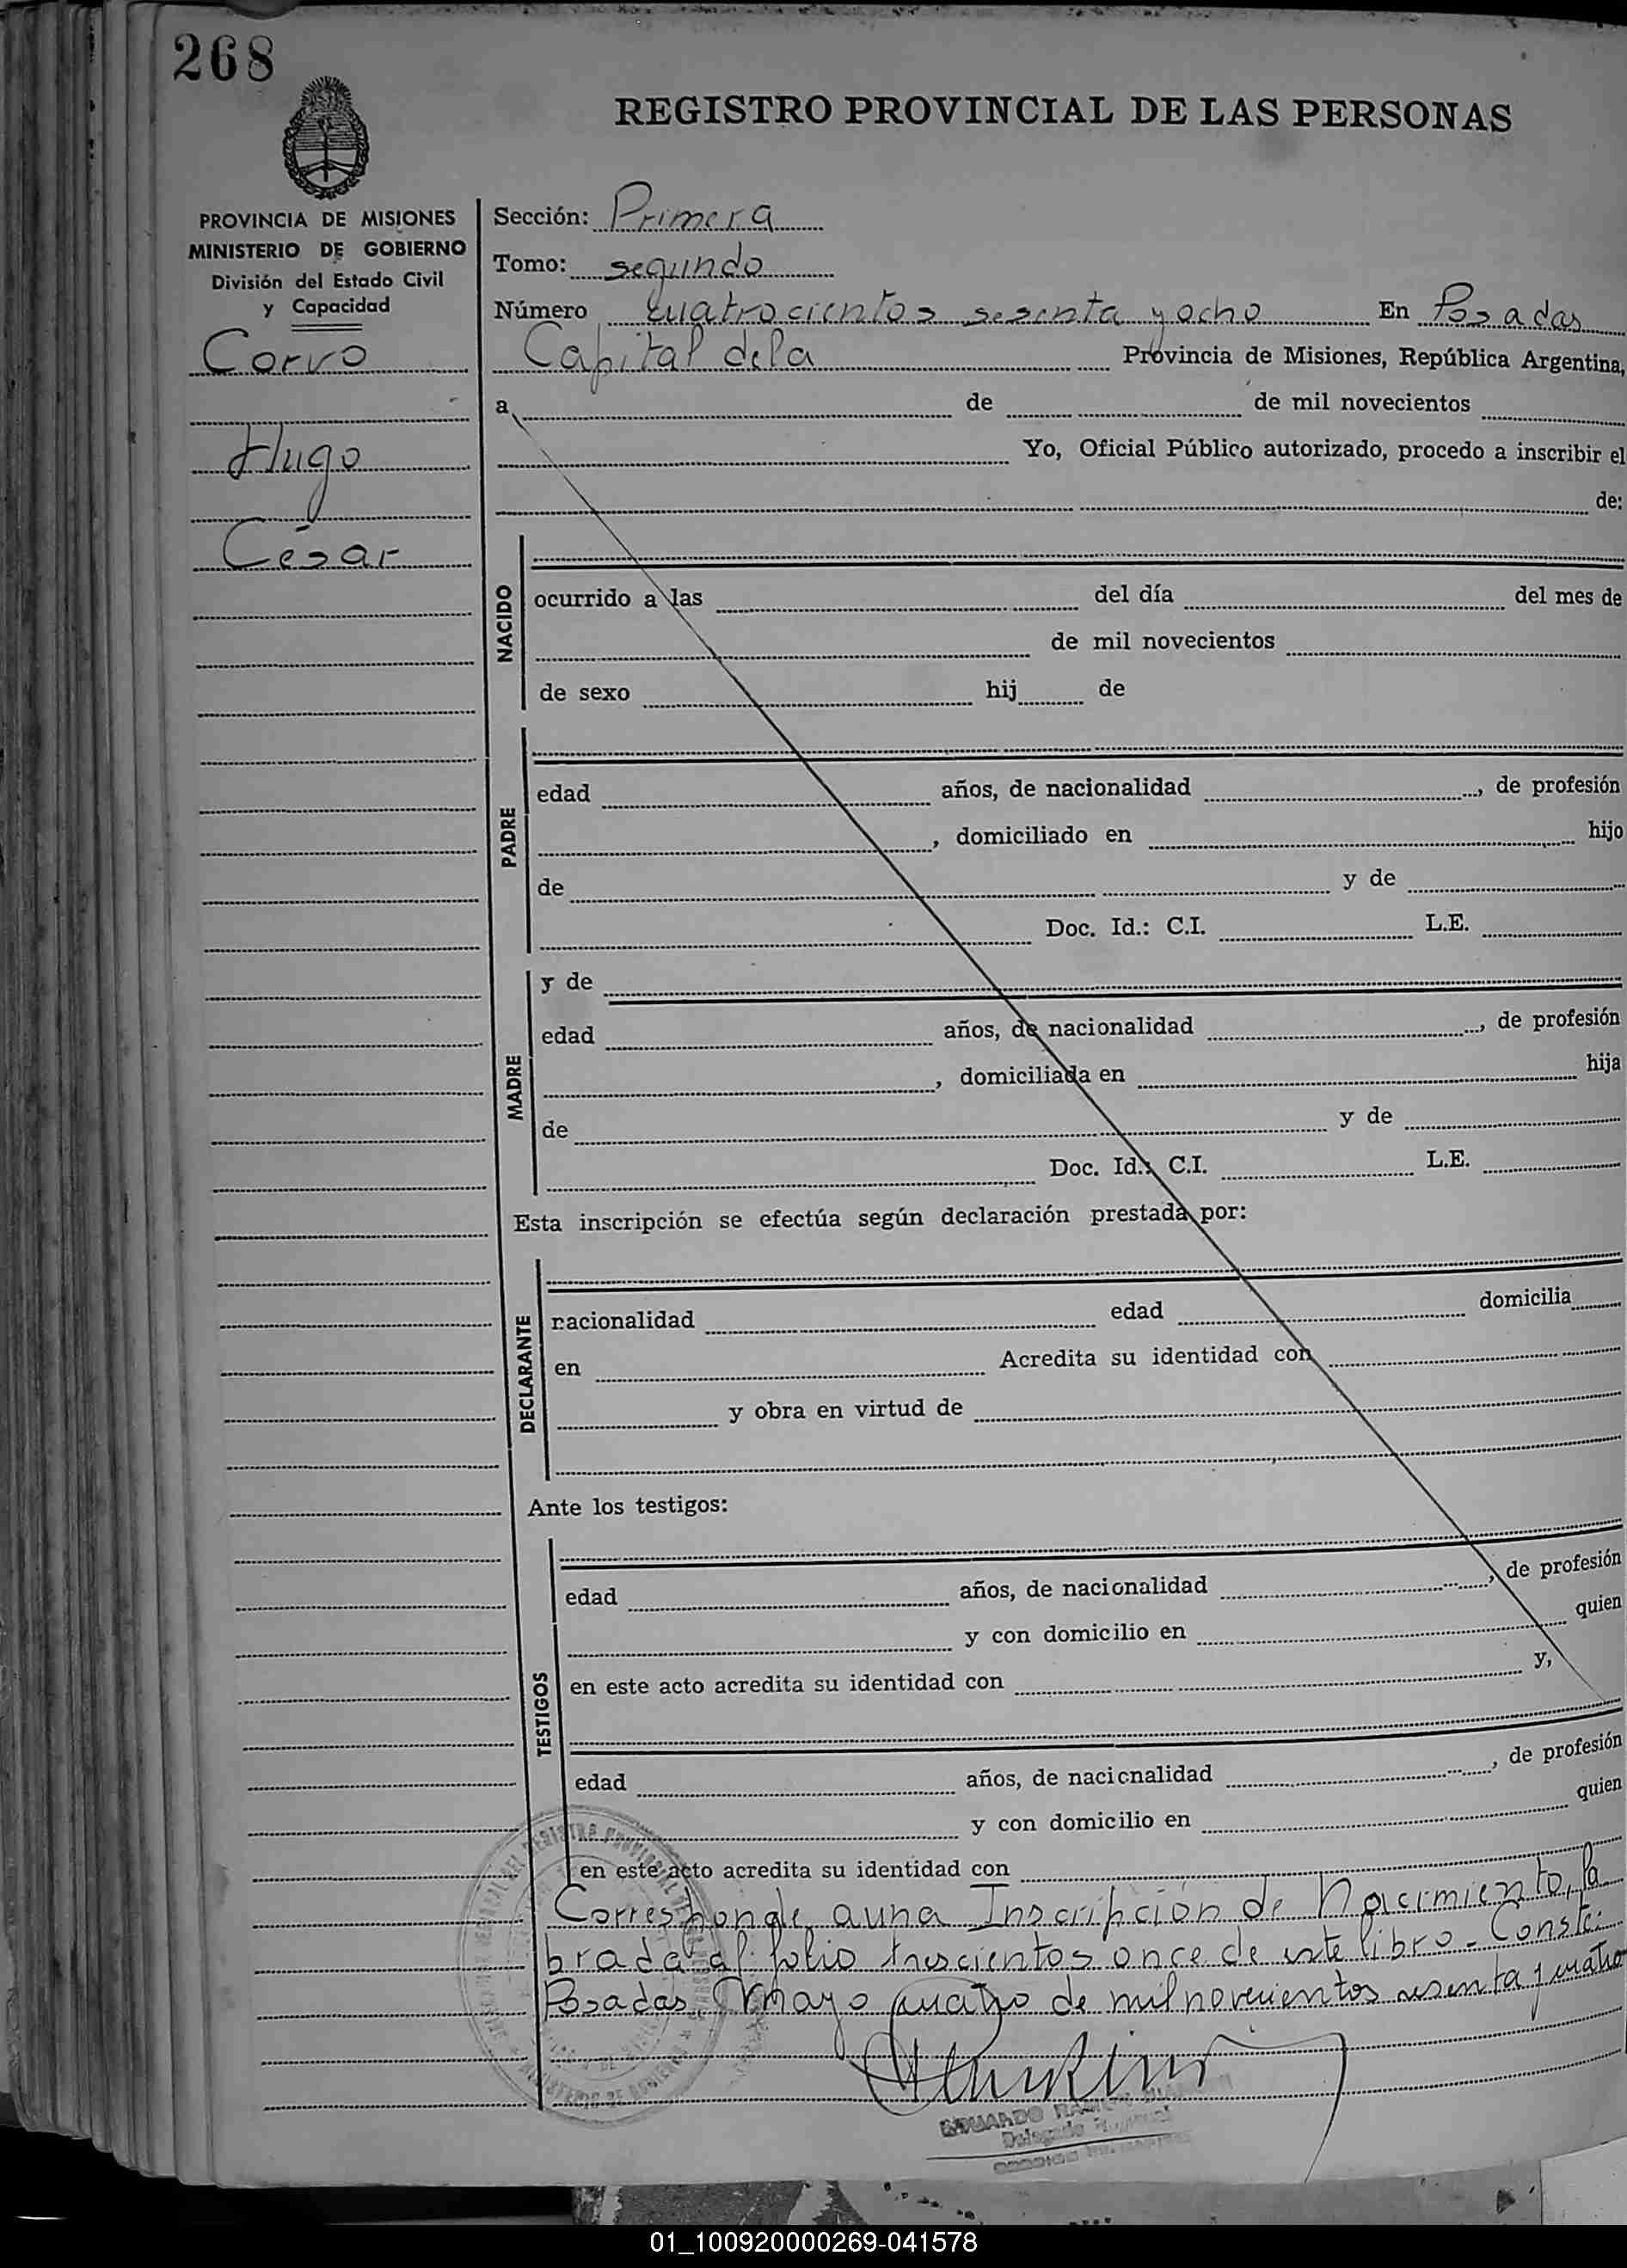 268
REGISTRO PROVINCIAL DE LAS PERSONAS
PROVINCIA DE MISIONES
MINISTERIO DE GOBIERNO
División del Estado Civil
y Capacidad
Corvo
Hugo
César
Sección: Primera
Tomo: segundo
Número cuatrocientos sesenta y ocho En Posadas
Capital dela Provincia de Misiones, República Argentina,
a de de mil novecientos
Yo, Oficial Público autorizado, procedo a inscribir el
de:
NACIDO
ocurrido a las del día del mes de
de mil novecientos
de sexo hij de
PADRE
edad años, de nacionalidad , de profesión
, domiciliado en hijo
de y de
Doc. Id.: C.I. L.E.
MADRE
y de
edad años, de nacionalidad , de profesión
, domiciliada en hija
de y de
Doc. Id.: C.I. L.E.
Esta inscripción se efectúa según declaración prestada por:
DECLARANTE
racionalidad edad domicilia
en Acredita su identidad con
y obra en virtud de
Ante los testigos:
TESTIGOS
edad años, de nacionalidad , de profesión
y con domicilio en quien
en este acto acredita su identidad con y,
edad años, de nacicnalidad , de profesión
y con domicilio en quien
en este acto acredita su identidad con
Corresponde auna Inscripción de Nacimiento, la
brada al folio trescientos once de este libro. Conste:
Posadas, Mayo cuatro de mil novecientos sesenta y cuatro
EDUARDO
Delegado
01_100920000269-041578